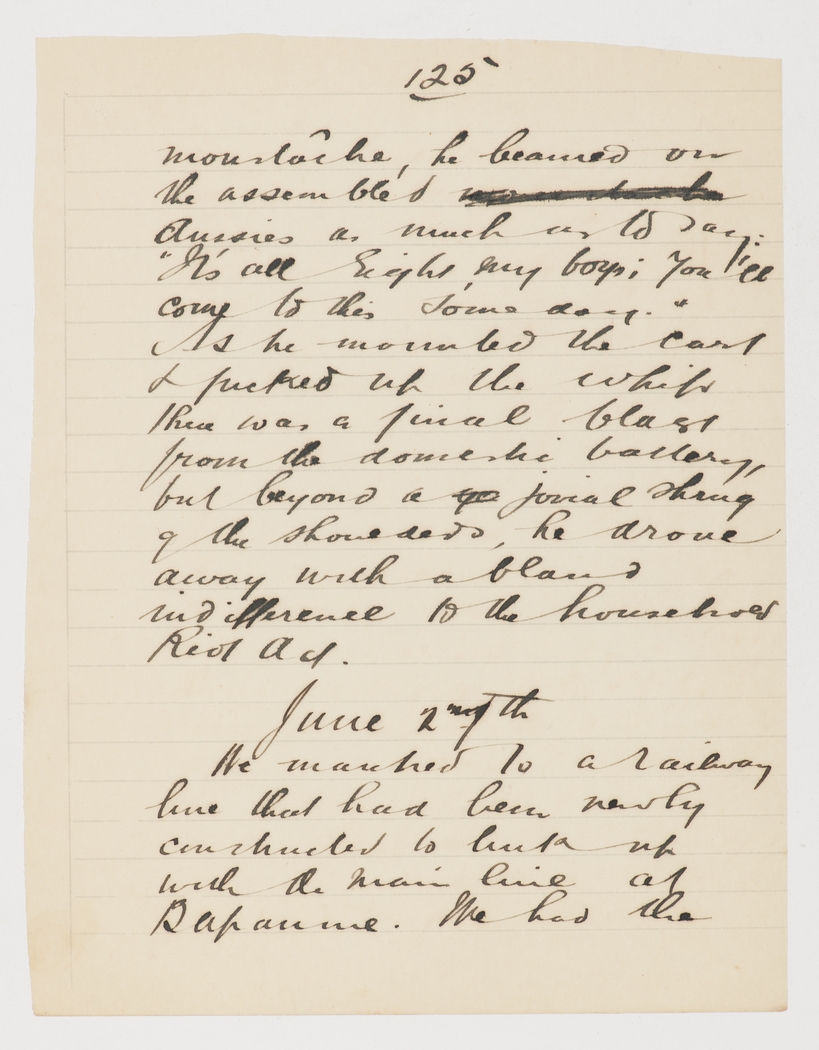 125
moustache, he beamed on
the assembled
Aussies as much as to say:
"It's all right, my boys; you'll
come to this some day."
As he mounted the cart
& picked up the whip
there was a final blast
from the domestic battery,
but beyond a jovial shrug
of the shoulders, he drove
away with a bland
indifference to the household
Riot Act.
June 27th
We marched to a railway
line that had been newly
constructed to link up
with the main line at
Bapaume. We had the